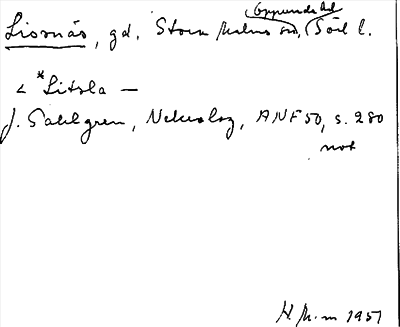 Lisnäs, gd. Stora Malms sn, Oppunda hd Södl.
< *Litsla —
J. Sahlgren, Nekrolog, ANF 50, s. 280
not
H. M-m 1951